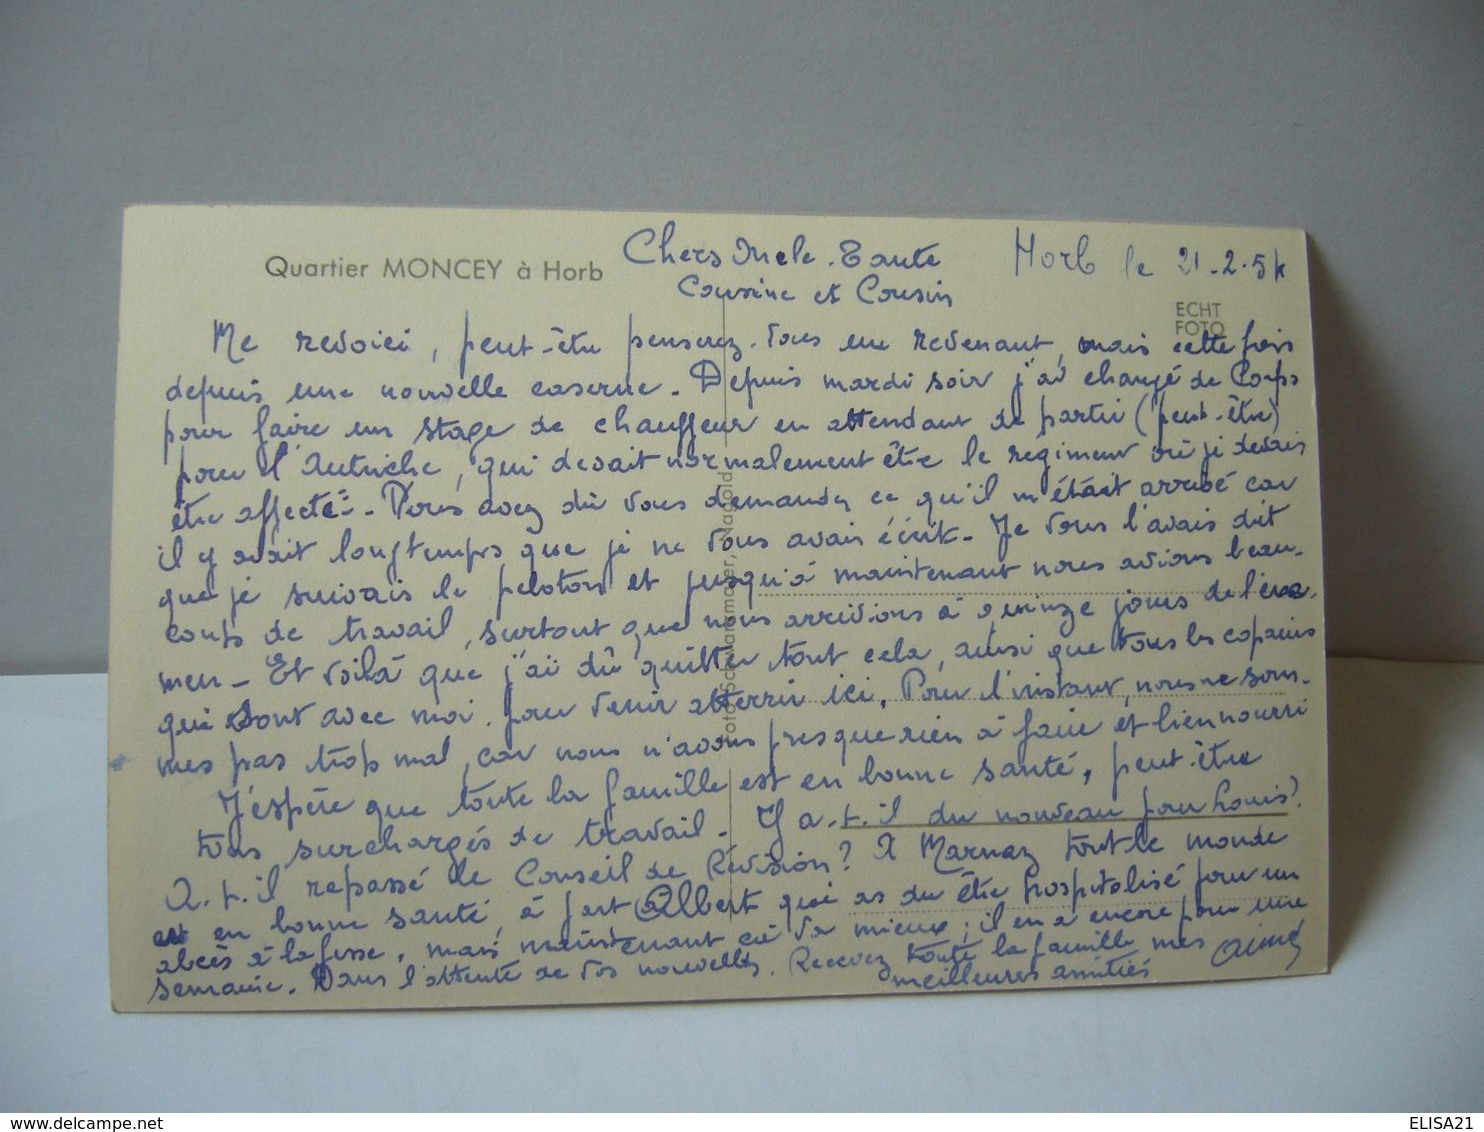 Quartier MONCEY à Horb
Chers Oncle - Tante
Cousine et Cousin
Horb le 21-2-54
ECHT
FOTO
Me revoici, peut-être penserez-vous un revenant, mais cette fois
depuis une nouvelle caserne. Depuis mardi soir j'ai changé de Corps
pour faire un stage de chauffeur en attendant de partir (peut-être)
pour l'Autriche, qui devait normalement être le régiment où je devais
être affecté. Vous avez dû vous demander ce qu'il m'était arrivé car
il y avait longtemps que je ne vous avais écrit. Je vous l'avais dit
que je suivais le peloton et jusqu'à maintenant nous avions beau-
coup de travail, surtout que nous arrivions à quinze jours de l'exa-
men. Et voilà que j'ai dû quitter tout cela, ainsi que tous les copains
qui sont avec moi. pour venir atterrir ici. Pour l'instant, nous ne som-
mes pas trop mal, car nous n'avons presque rien à faire et bien nourri
J'espère que toute la famille est en bonne santé, peut-être
tous surchargés de travail. Y a-t-il du nouveau pour Louis?
A-t-il repassé le Conseil de Révision? A Marnaz tout le monde
est en bonne santé, à part Albert qui as du être hospitalisé pour un
abcès à la fesse, mais maintenant ça va mieux; il en a encore pour une
semaine. Dans l'attente de vos nouvelles. Recevez toute la famille mes
meilleures amitiés
Aimé
Foto Schwarzmaier, Nagold
ELISA21
www.delcampe.net